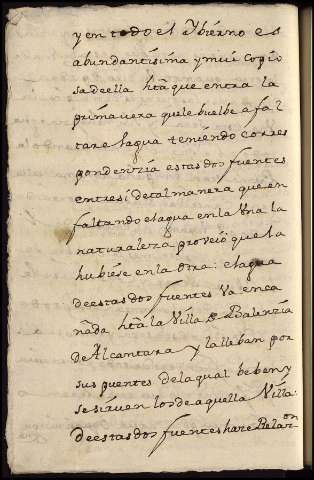 y en todo el Ibierno es
abundantisima y mui copio
sa de ella hta que entra la
primavera que le buelbe a fal
tar el agua teniendo corres
pondenzia estas dos fuentes
entresi de tal manera que en
faltando el agua en la Una la
naturaleza proveió que la
hubiese en la otra: el agua
de estas dos fuentes va enca
nada hta la Villa de Balenzia
de Alcantara y la lleban por
sus puentes de la qual beben y
se sirven los de aquella Villa:
de estas dos fuentes hare Relaon